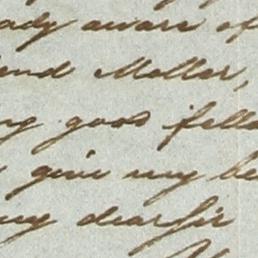 ady aware of
end Moller,
ng good fello
give my be
my dear sir